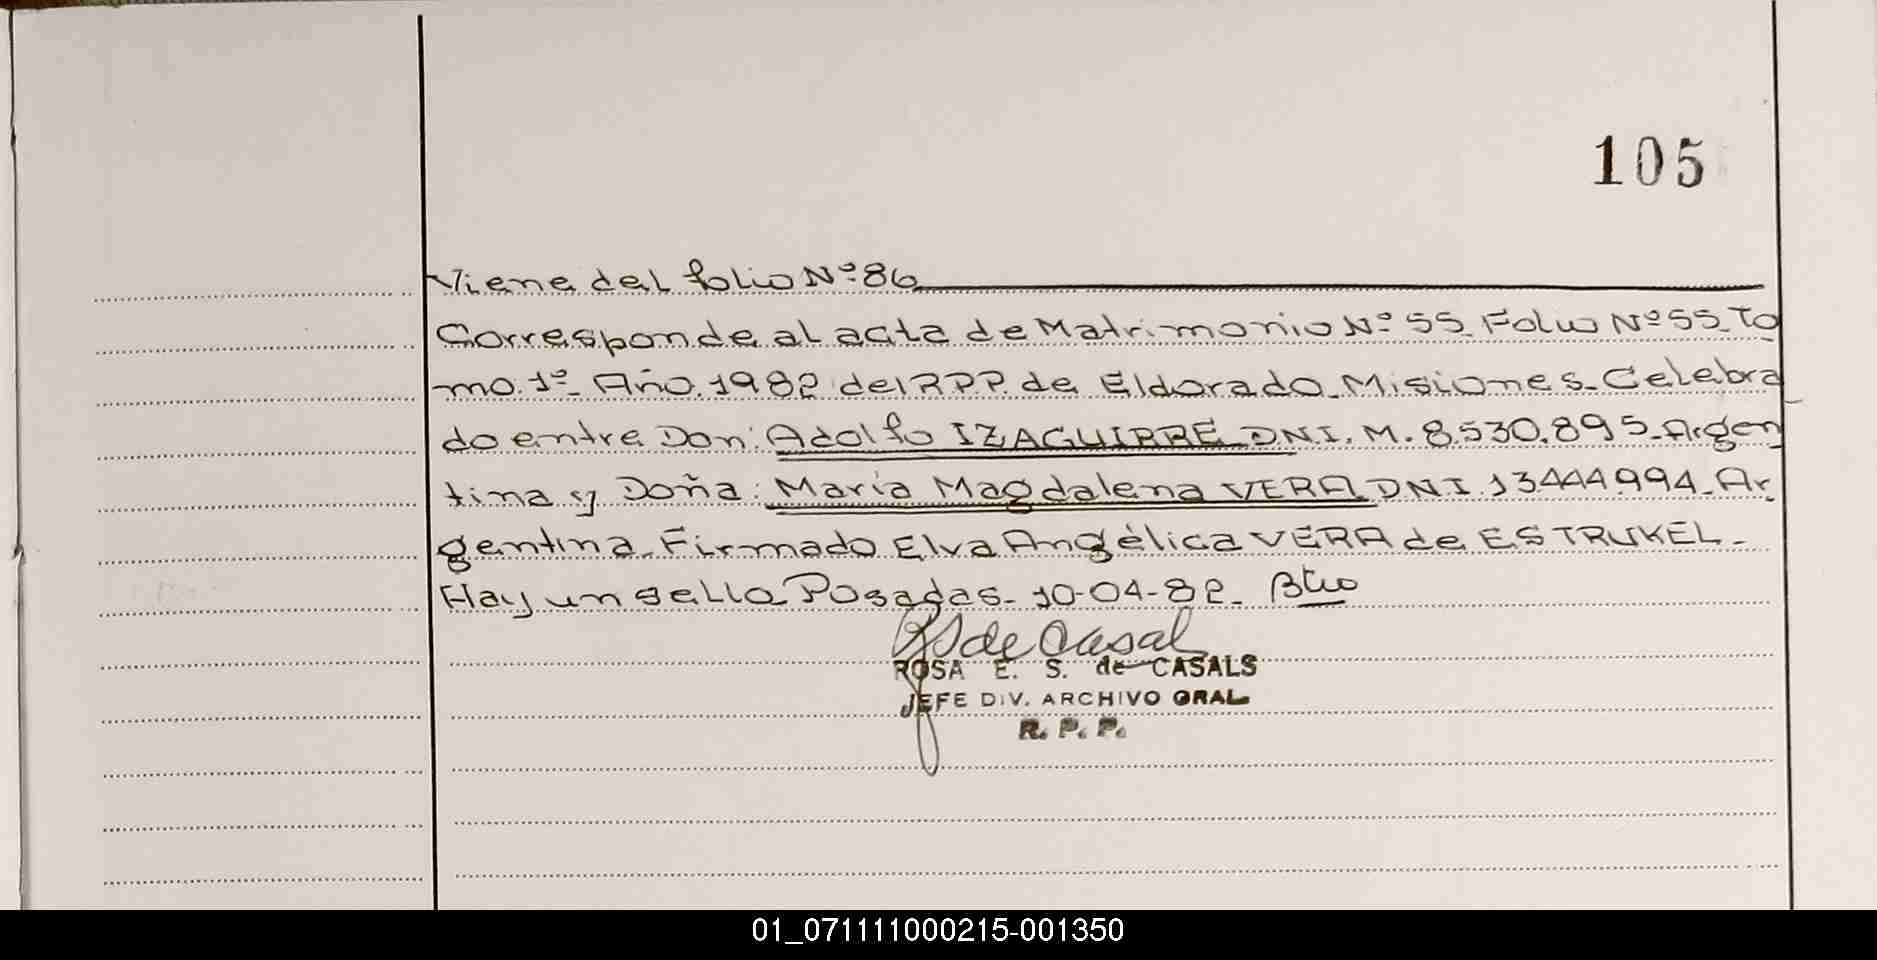 105
Viene del folio Nº 86
Corresponde al acta de Matrimonio Nº 55. Folio Nº 55. To
mo. 1º- Año. 1982 del R.P.P. de Eldorado. Misiones. Celebra
do entre Don: Adolfo IZAGUIRRE D.N.I. M. 8.530.895- Argen
tina y Doña: María Magdalena VERA DNI 13.444.994- Ar
gentina. Firmado Elva Angélica VERA de ESTRUKEL-
Hay un sello Posadas- 10-04-82-
de Casal
ROSA E. S. de CASALS
JEFE DIV. ARCHIVO GRAL
R. P. P.
01_071111000215-001350